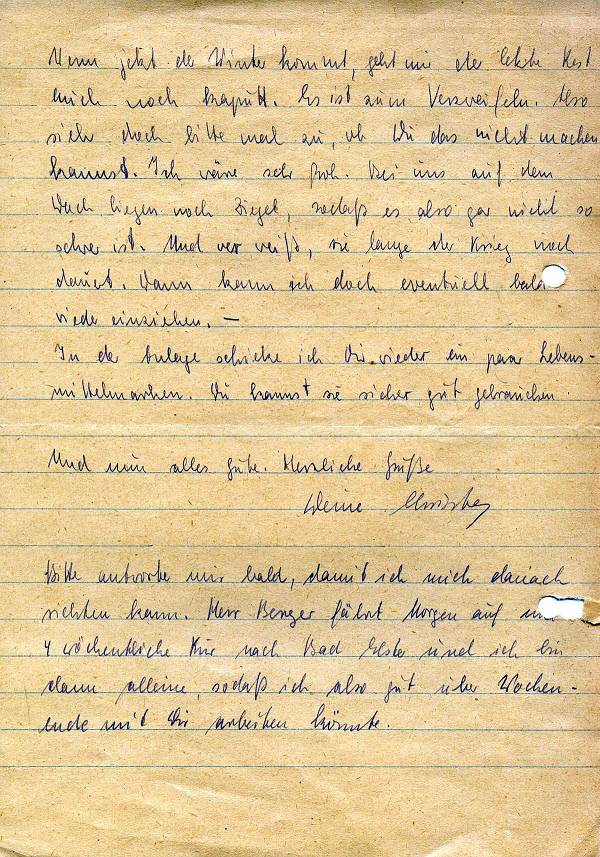 Wenn jetzt der Winter kommt, geht mir der letzte Rest
auch noch kaputt. Es ist zum Verzweifeln. Also
sieh doch bitte mal zu, ob Du das nicht machen
kannst. Ich wäre sehr froh. Bei uns auf dem
Dach liegen noch Ziegel, sodaß es also gar nicht so
schwer ist. Und wer weiß, wie lange der Krieg noch
dauert. Dann kann ich doch eventuell bald
wieder einziehen. —
In der Anlage schicke ich Dir wieder ein paar Lebens-
mittelmarken. Du kannst sie sicher gut gebrauchen.
Und nun alles gute. Herzliche Grüße
Deine
Bitte antworte mir bald, damit ich mich danach
richten kann. Herr Berger fährt Morgen auf
4 wöchentliche Kur nach Bad Elster und ich bin
dann alleine, sodaß ich also gut über Wochen-
ende mit Dir arbeiten könnte.